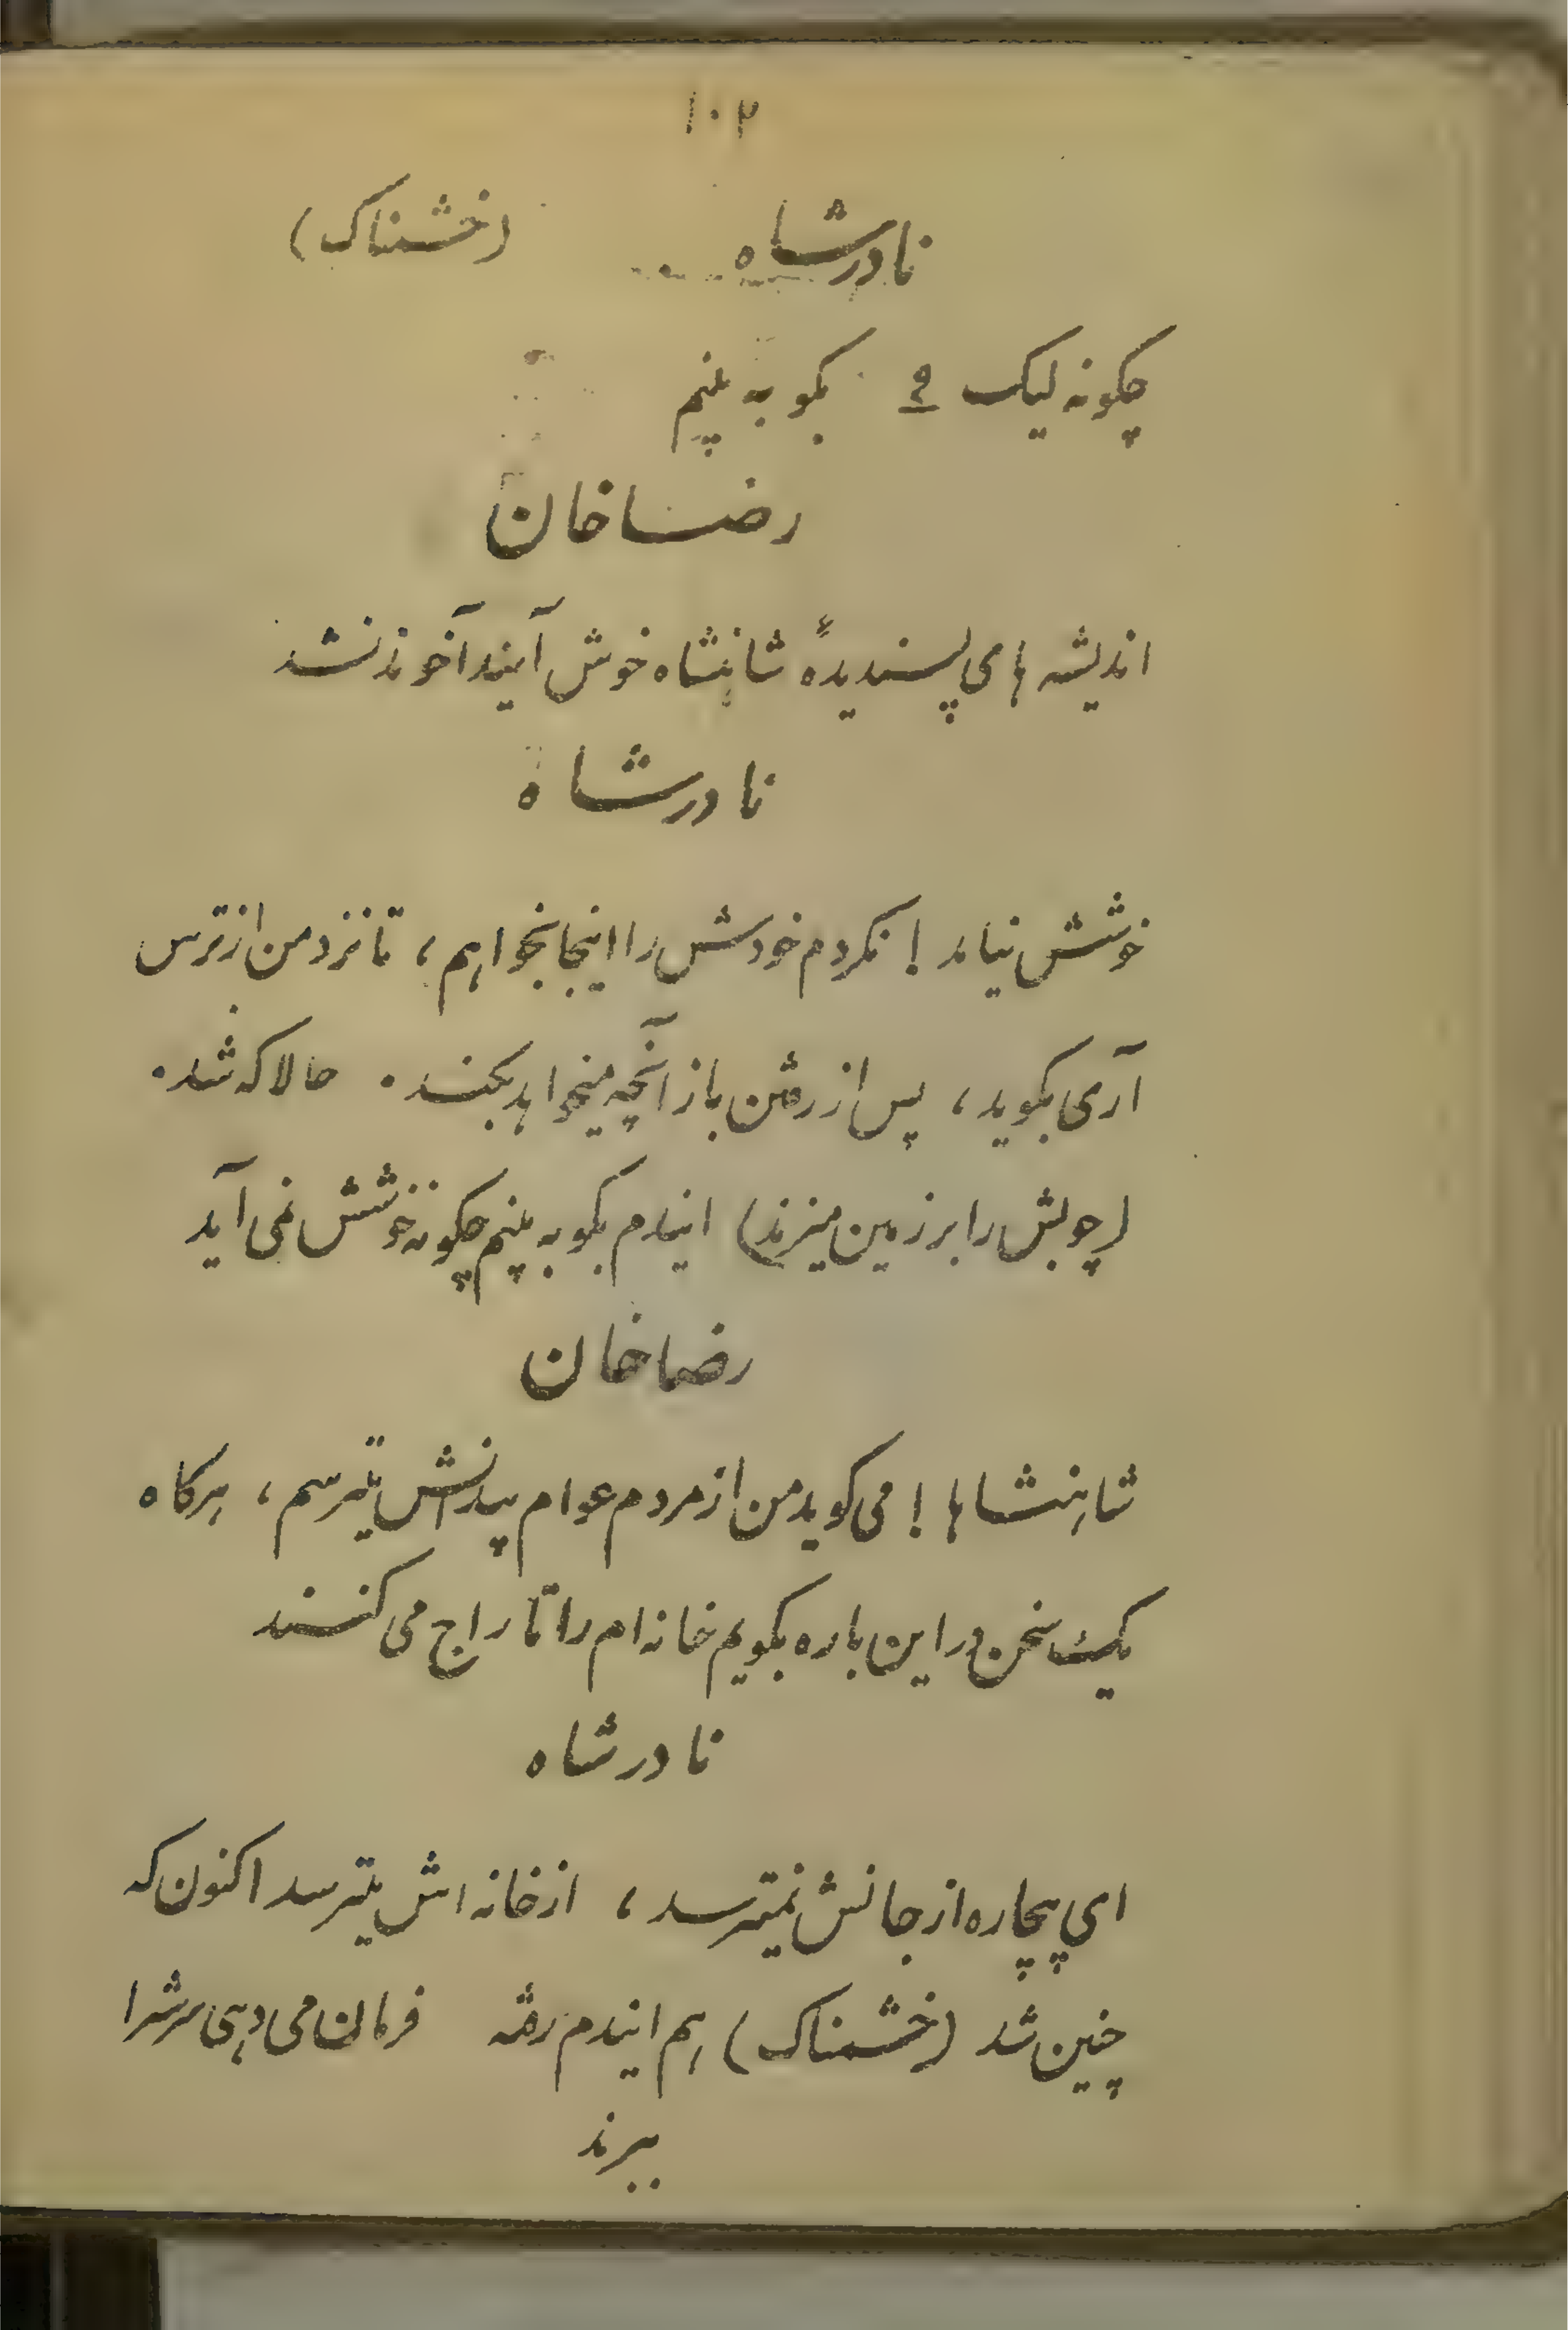 ۱۰۲
نادرشاه (خشمناک)
چکونه لیک ؟ بکو به بینم
رضاخان
اندیشه های پسندیدهٔ شاهنشاه خوش آیند آخوند نشد
نادرشاه
خوشش نیاند ! نکردم خودش را اینجا بخواهم ، تا نزد من از ترس
آری بکوید ، پس از رفتن باز آنچه میخواهد بکند . حالا که شد .
(چوبش را بر زمین میزند) ایندم بکو به بینم چکونه خوشش نمی آید
رضاخان
شاهنشاها ! می کوید من از مردم عوام بیدانش میترسم ، هرکاه
یک سخن در این باره بکویم خانه ام را تاراج می کنند
نادرشاه
ای بیچاره از جانش نمیترسد ، از خانه اش میترسد اکنون که
چنین شد (خشمناک) هم ایندم رفته فرمان می دهی سرشرا
ببرند